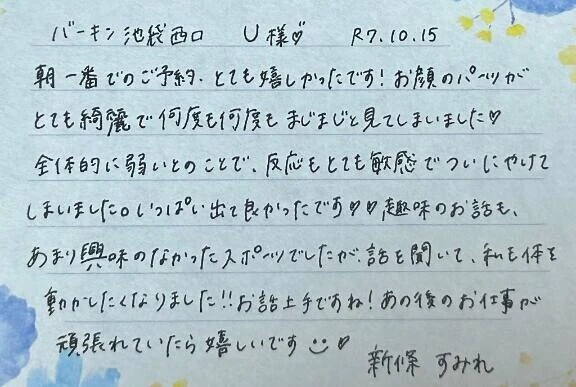 バーキン池袋西口 U様♡ R7.10.15
朝一番でのご予約、とても嬉しかったです！お顔のパーツが
とても綺麗で何度も何度もまじまじと見てしまいました♡
全体的に弱いとのことで、反応もとても敏感でついにやけて
しまいました。いっぱい出て良かったです♡♡趣味のお話も、
あまり興味のなかったスポーツでしたが、話を聞いて、私も体を
動かしたくなりました!!お話上手ですね！あの後のお仕事が
頑張れていたら嬉しいです☺♡
新條 すみれ